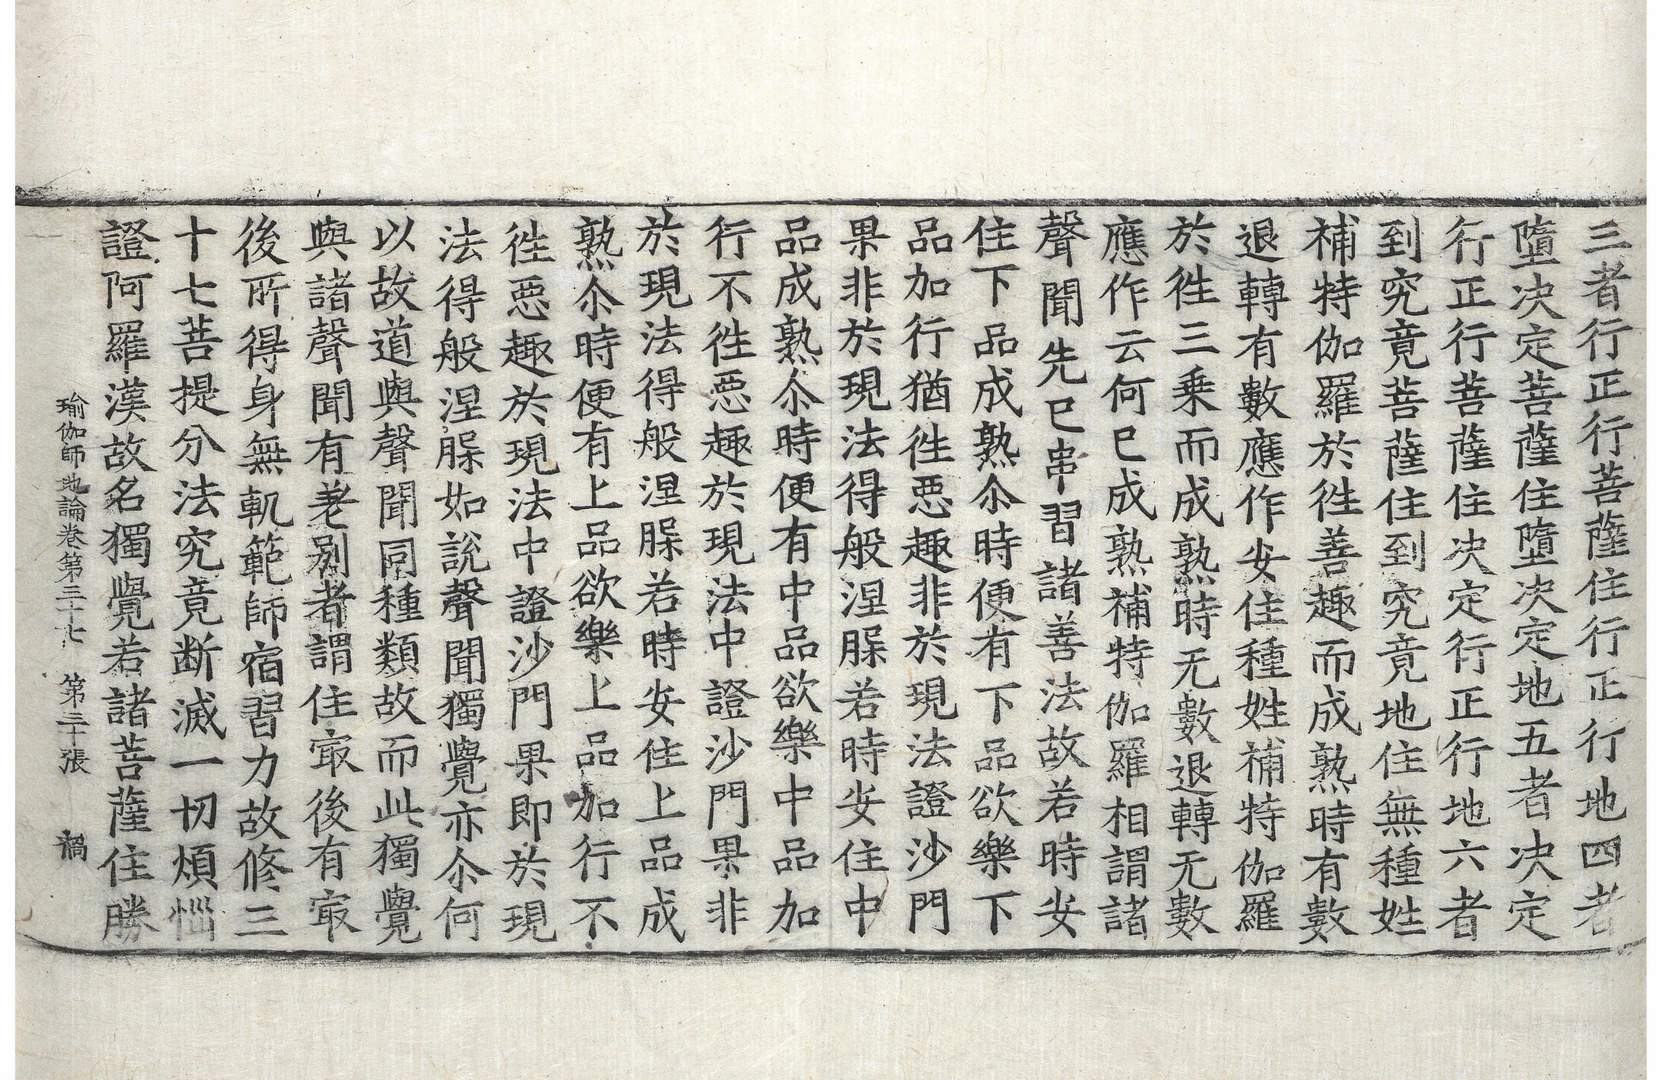 三者行正行菩薩住行正行地四者
墮决定菩薩住墮决定地五者决定
行正行菩薩住决定行正行地六者
到究竟菩薩住到究竟地住無種姓
補特伽羅於徃善趣而成熟時有數
退轉有數應作安住種姓補特伽羅
於徃三乗而成熟時无數退轉无數
應作云何已成熟補特伽羅相謂諸
聲聞先已串習諸善法故若時安
住下品成熟尒時便有下品欲樂下
品加行猶徃惡趣非於現法證沙門
果非於現法得般涅槃若時安住中
品成熟尒時便有中品欲樂中品加
行不徃惡趣於現法中證沙門果非
於現法得般涅槃若時安住上品成
熟尒時便有上品欲樂上品加行不
徃惡趣於現法中證沙門果即於現
法得般涅槃如說聲聞獨覺亦尒何
以故道與聲聞同種類故而此獨覺
與諸聲聞有差别者謂住㝡後有㝡
後所得身無軌範師宿習力故修三
十七菩提分法究竟断滅一切煩惱
證阿羅漢故名獨覺若諸菩薩住勝
瑜伽師地論卷第三十七　第三十張